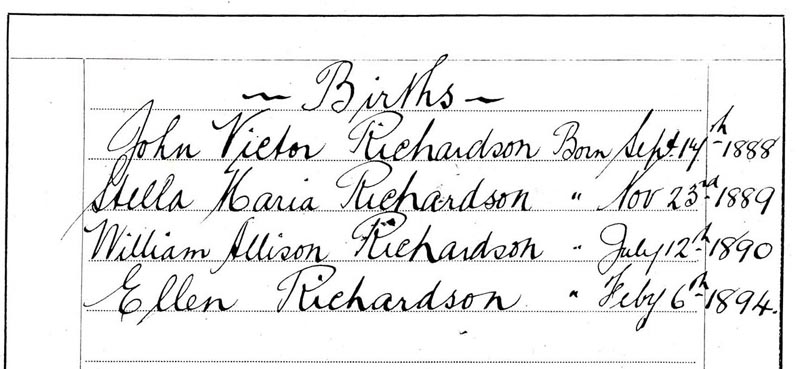 ~ Births ~
John Victor Richardson Born Sept 14th 1888
Stella Maria Richardson " Nov 23rd 1889
William Allison Richardson " July 12th 1890
Ellen Richardson " Feby 6th 1894.